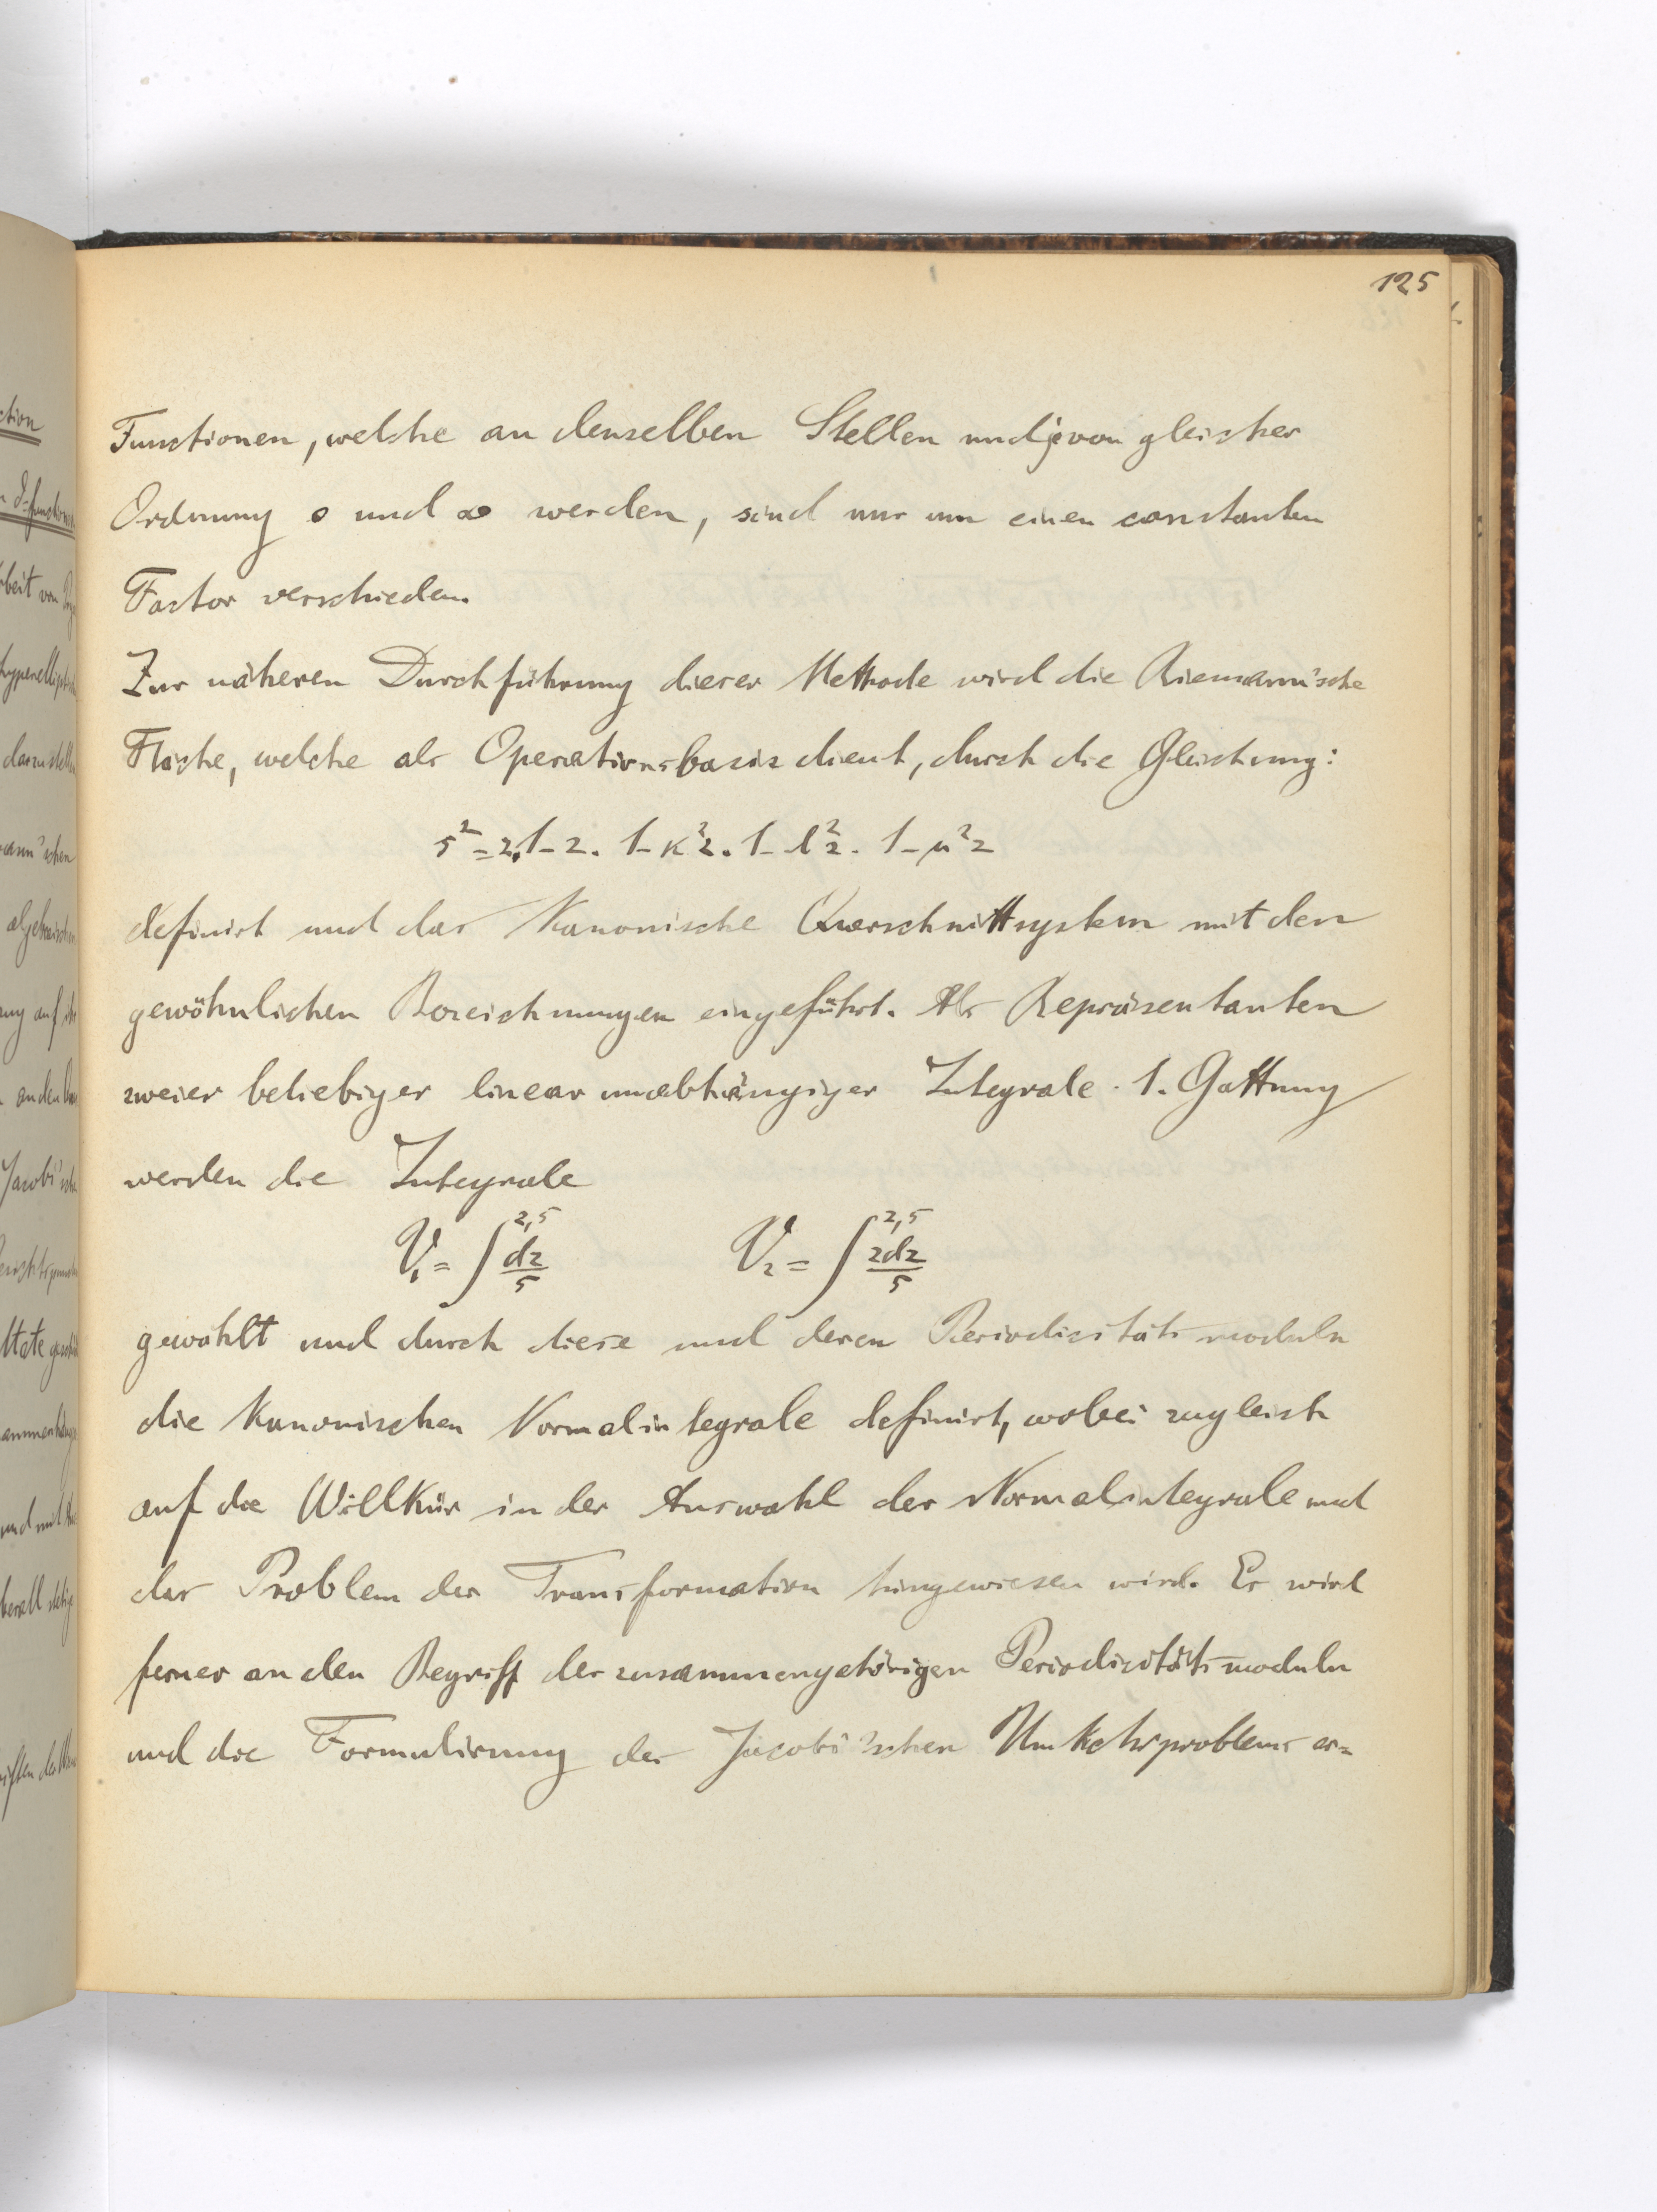 125
Functionen, welche an denselben Stellen und je von gleicher
Ordnung 0 und ∞ werden, sind nur um einen constanten
Factor verschieden.
Zur näheren Durchführung dieser Methode wird die Riemann'sche
Fläche, welche als Operationsbasis dient, durch die Gleichung:
s² = z.1-z. 1-κ²z. 1-λ²z. 1-μ²z
definirt und das kanonische Querschnittsystem mit den
gewöhnlichen Bezeichnungen eingeführt. Als Repräsentanten
zweier beliebiger linear unabhängiger Integrale 1. Gattung
werden die Integrale
V₁ = ∫^{z,s} dz/s V₂ = ∫^{z,s} zdz/s
gewählt und durch diese und deren Periodicitätsmoduln
die kanonischen Normalintegrale definirt, wobei zugleich
auf die Willkür in der Auswahl der Normalintegrale und
das Problem der Transformation hingewiesen wird. Es wird
ferner an den Begriff der zusammengehörigen Periodicitätsmoduln
und die Formulirung des Jacobi'schen Umkehrproblems er=